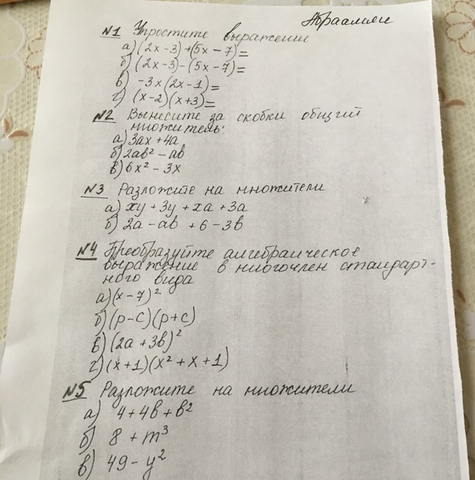 №1 Упростите выражение
а) (2x-3)+(5x-7)=
б) (2x-3)-(5x-7)=
в) -3x(2x-1)=
г) (x-2)(x+3)=
№2 Вынесите за скобки общий
множитель:
а) 3ax+4a
б) 2ab²-ab
в) 6x²-3x
№3 Разложите на множители
а) xy+3y+xa+3a
б) 2a-ab+6-3b
№4 Преобразуйте алгебраическое
выражение в многочлен стандарт-
ного вида
а) (x-7)²
б) (p-c)(p+c)
в) (2a+3b)²
г) (x+1)(x²+x+1)
№5 Разложите на множители
а) 4+4b+b²
б) 8+m³
в) 49-y²